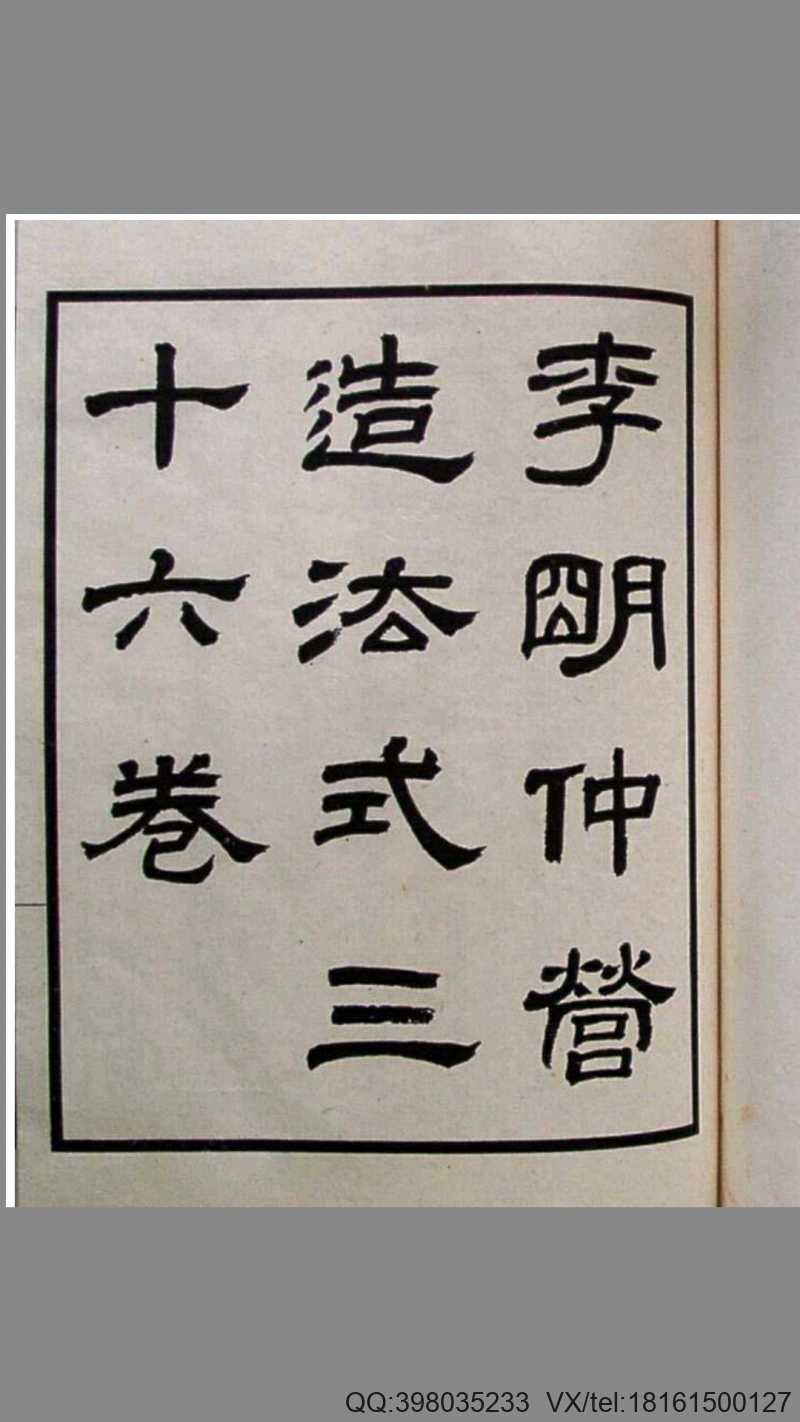 李朙仲營
造法式三
十六卷
QQ:398035233 VX/tel:18161500127